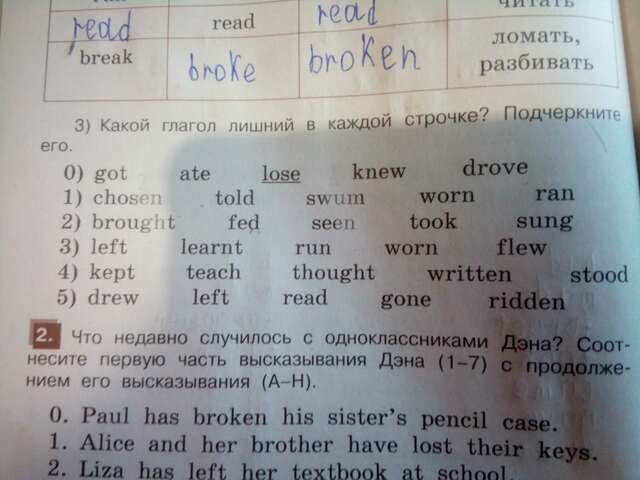 читать
read read read
break broke broken ломать,
разбивать
3) Какой глагол лишний в каждой строчке? Подчеркните
его.
0) got ate lose knew drove
1) chosen told swum worn ran
2) brought fed seen took sung
3) left learnt run worn flew
4) kept teach thought written stood
5) drew left read gone ridden
2. Что недавно случилось с одноклассниками Дэна? Соот-
несите первую часть высказывания Дэна (1–7) с продолже-
нием его высказывания (A–H).
0. Paul has broken his sister's pencil case.
1. Alice and her brother have lost their keys.
2. Liza has left her textbook at school.